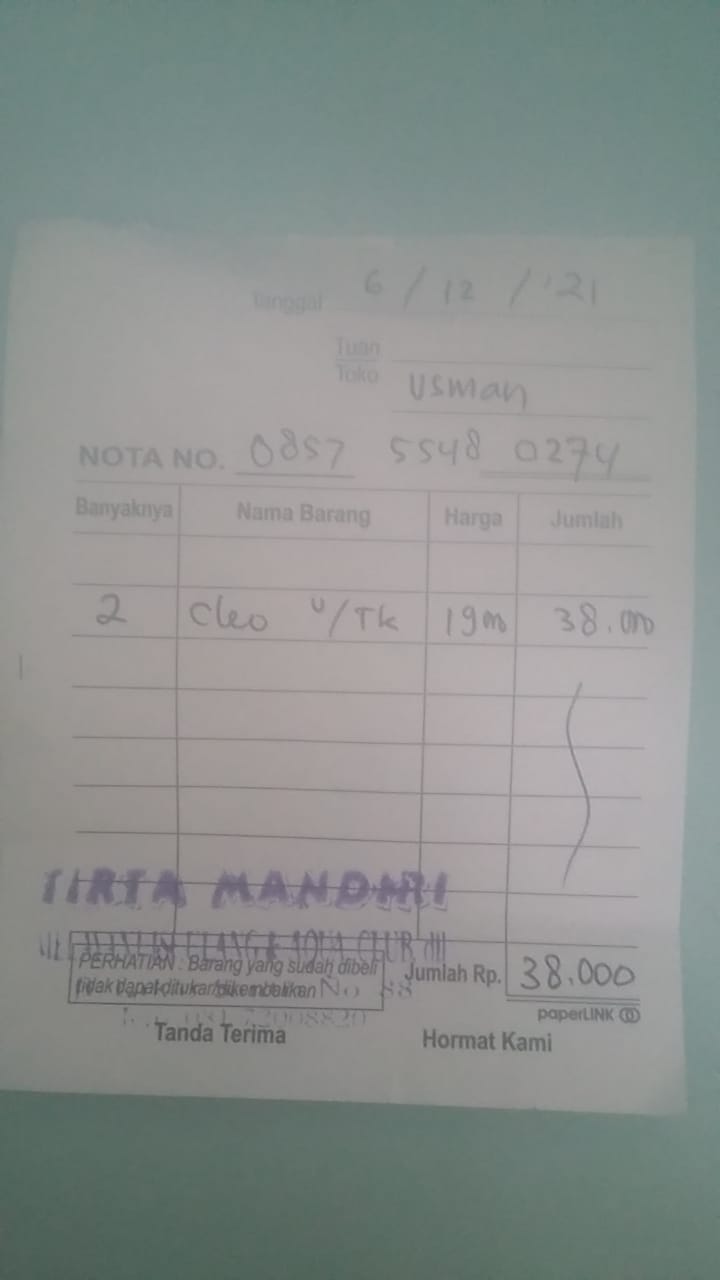 Tanggal 6 / 12 / '21
Tuan
Toko Usman
NOTA NO. 0857 5548 0274
Banyaknya Nama Barang Harga Jumlah
2 Cleo u/Tk 19000 38.000
TIRTA MANDIRI
PERHATIAN : Barang yang sudah dibeli
tidak dapat ditukar/dikembalikan No 88
Jumlah Rp. 38.000
paperLINK
Tanda Terima Hormat Kami